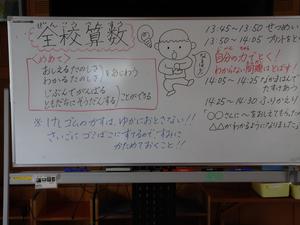 ぜんこうさんすう
全校算数
<めあて>
おしえるたのしさ
わかるたのしさ
をあじわう
じぶんでがんばる
ともだちにそうだんする
ことができる
※けしゴムのかすは、ゆかにおとさない!!
さいごに ゴミばこにすてるので、すみに
かためておくこと!!
13:45~13:50 せつめい
13:50~14:05 プリントを
自分の力でとく!
わからない問題はとばす!
14:05~14:25 なかまにきいて
たすけあう
14:25~14:30 ふりかえり
「○○さんに~をおしえてもらった
△△がわかるようになりました」